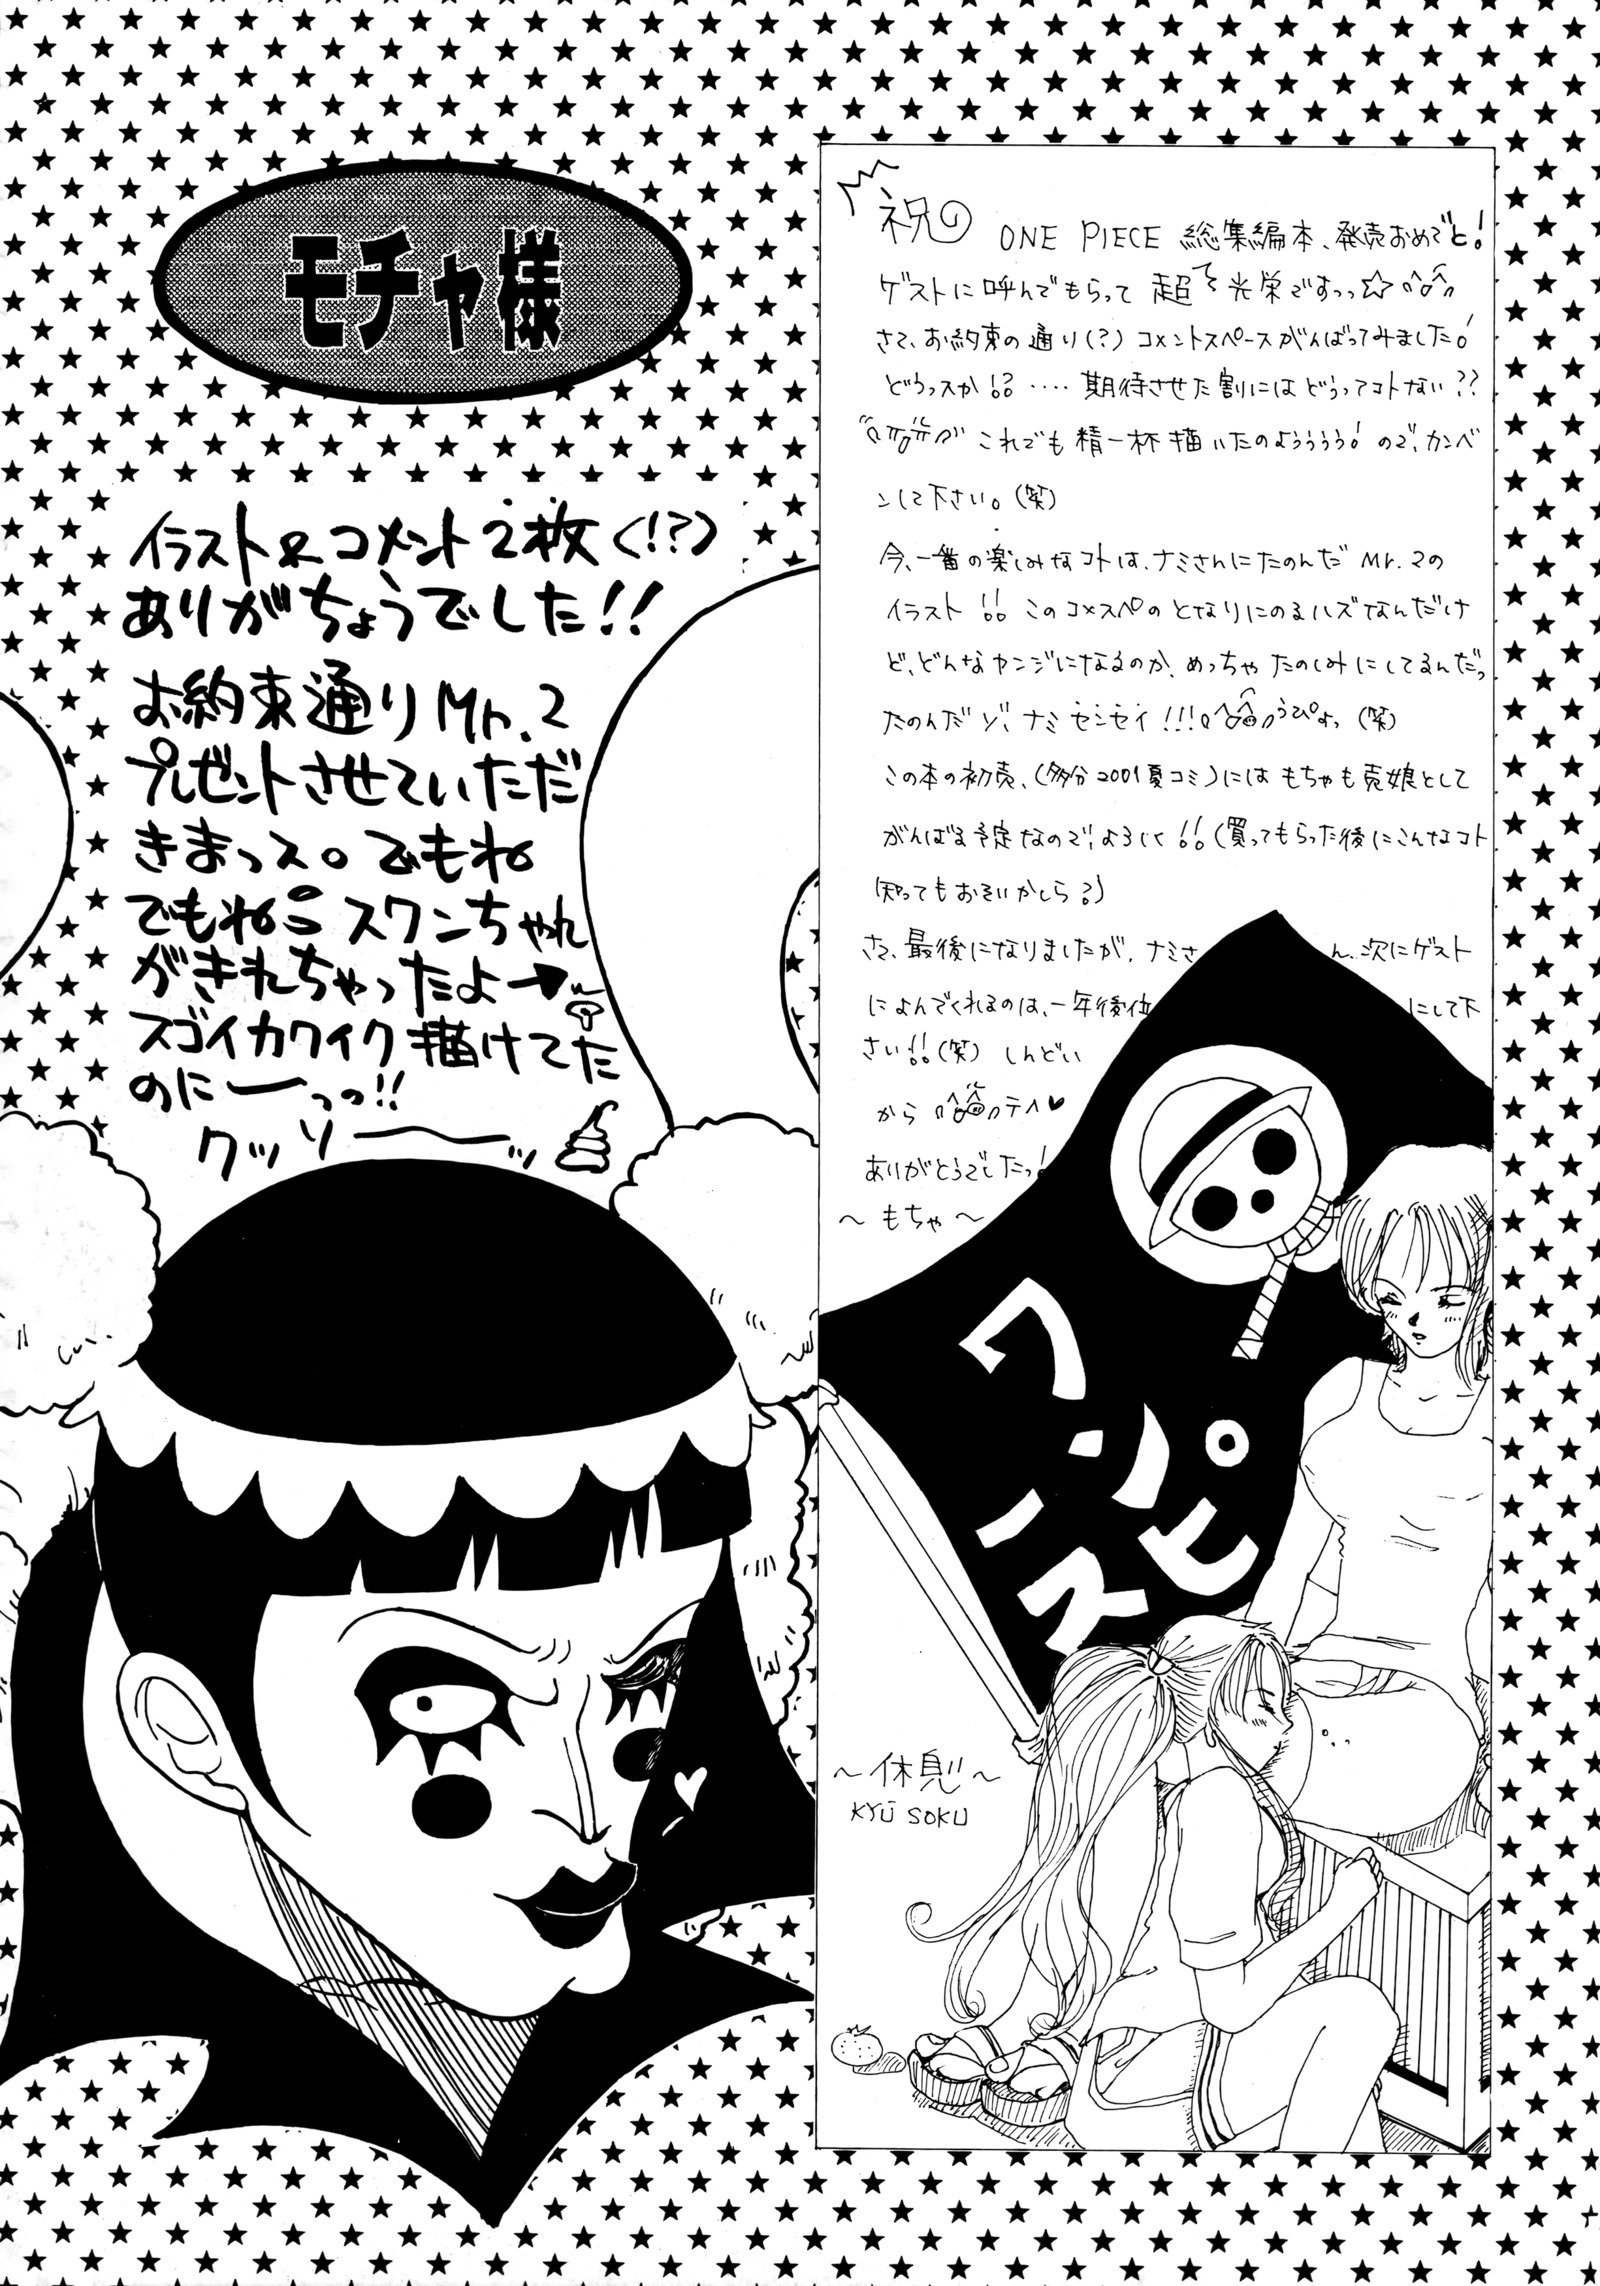 モチャ様
イラスト&コメント2枚(!?)
ありがちょうでした!!
お約束通りMr.2
プレゼントさせていただ
きまっス。でもね
でもね スワンちゃん
がきれちゃったよ→
スゴイカワイク描けてた
のにーっっ!!
クッソ〜ッ
祝 ONE PIECE 総集編本、発売おめでと!
ゲストに呼んでもらって超〜光栄ですっっ☆
さて、お約束の通り(?)コメントスペースがんばってみました!
どうっスか!? ‥‥期待させた割にはどうってコトない??
これでも精一杯描いたのようううう!ので、カンベ
ンして下さい。(笑)
今、一番の楽しみなコトは、ナミさんにたのんだ Mr.2の
イラスト!! このコメスペのとなりにのるハズなんだけ
ど、どんなカンジになるのか、めっちゃたのしみにしてるんだっ
たのんだゾ、ナミセンセイ!!! うぴょっ(笑)
この本の初売、(多分2001夏コミ)にはもちゃも売娘として
がんばる予定なので、よろしく!!(買ってもらった後にこんなコト
知ってもおそいかしら?)
さて、最後になりましたが、ナミさん、次にゲスト
によんでくれるのは、一年後位にして下
さい!!(笑) しんどい
から テヘ♥
ありがとうでしたっ!
〜もちゃ〜
ワンピース
〜休息〜
KYŪ SOKU